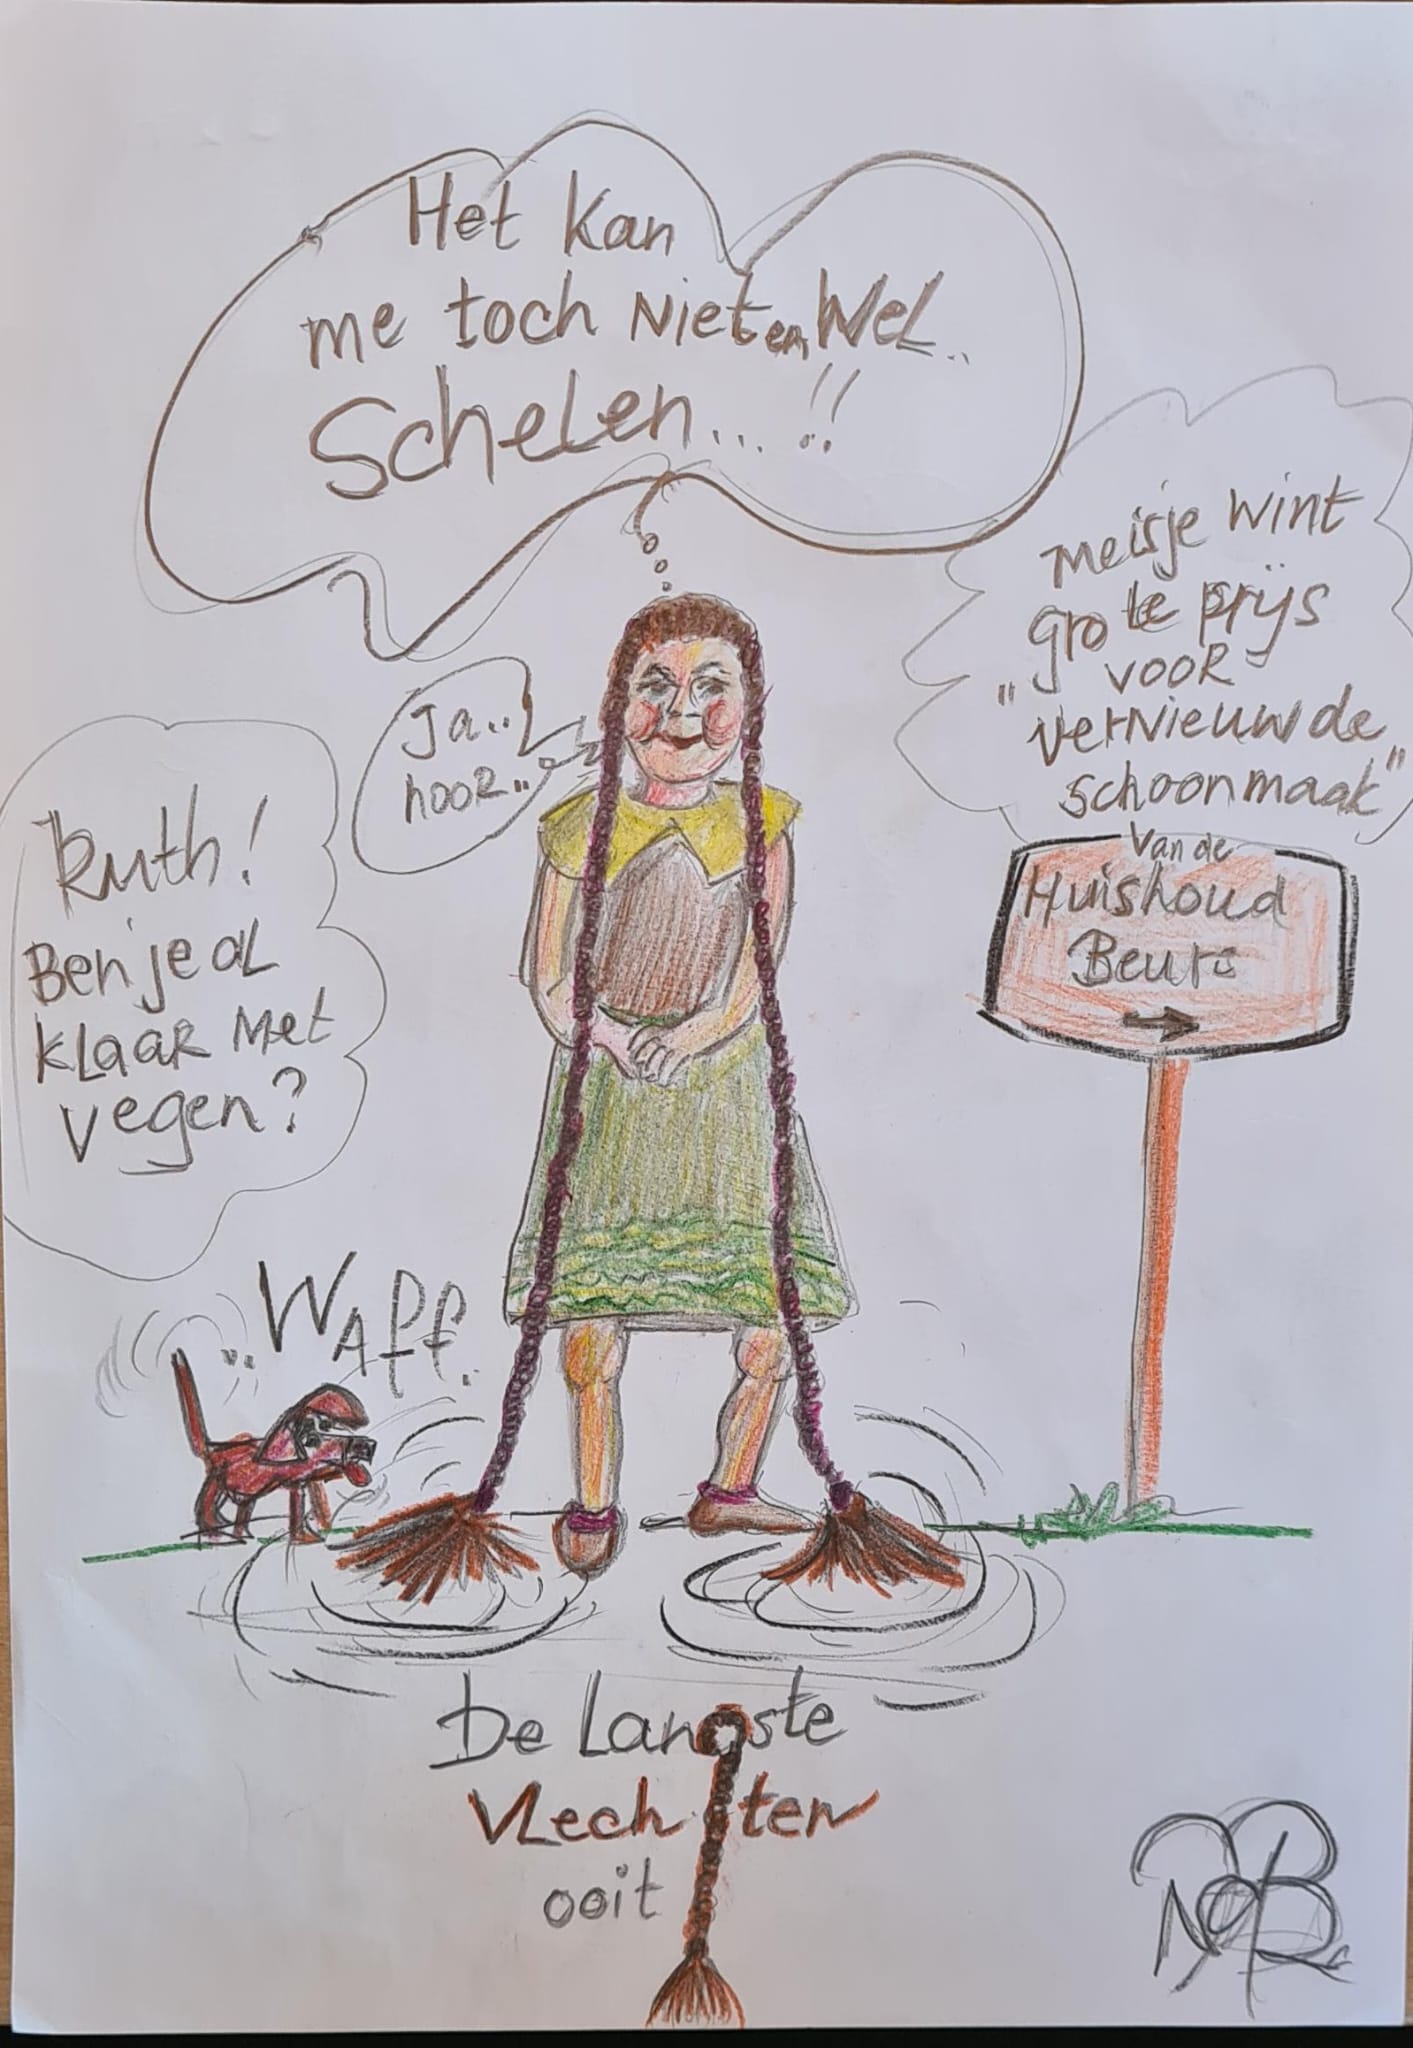 Het kan
me toch Niet en WeL..
ScheLen...!!
Meisje wint
grote prijs
VOOR
"verNieuwde
schoonmaak"
Van de
Huishoud
Beurs
Ja..
hooR..
Ruth!
Ben je aL
KLaaR Met
vegen?
..Waff.
De Langste
VLechten
ooit